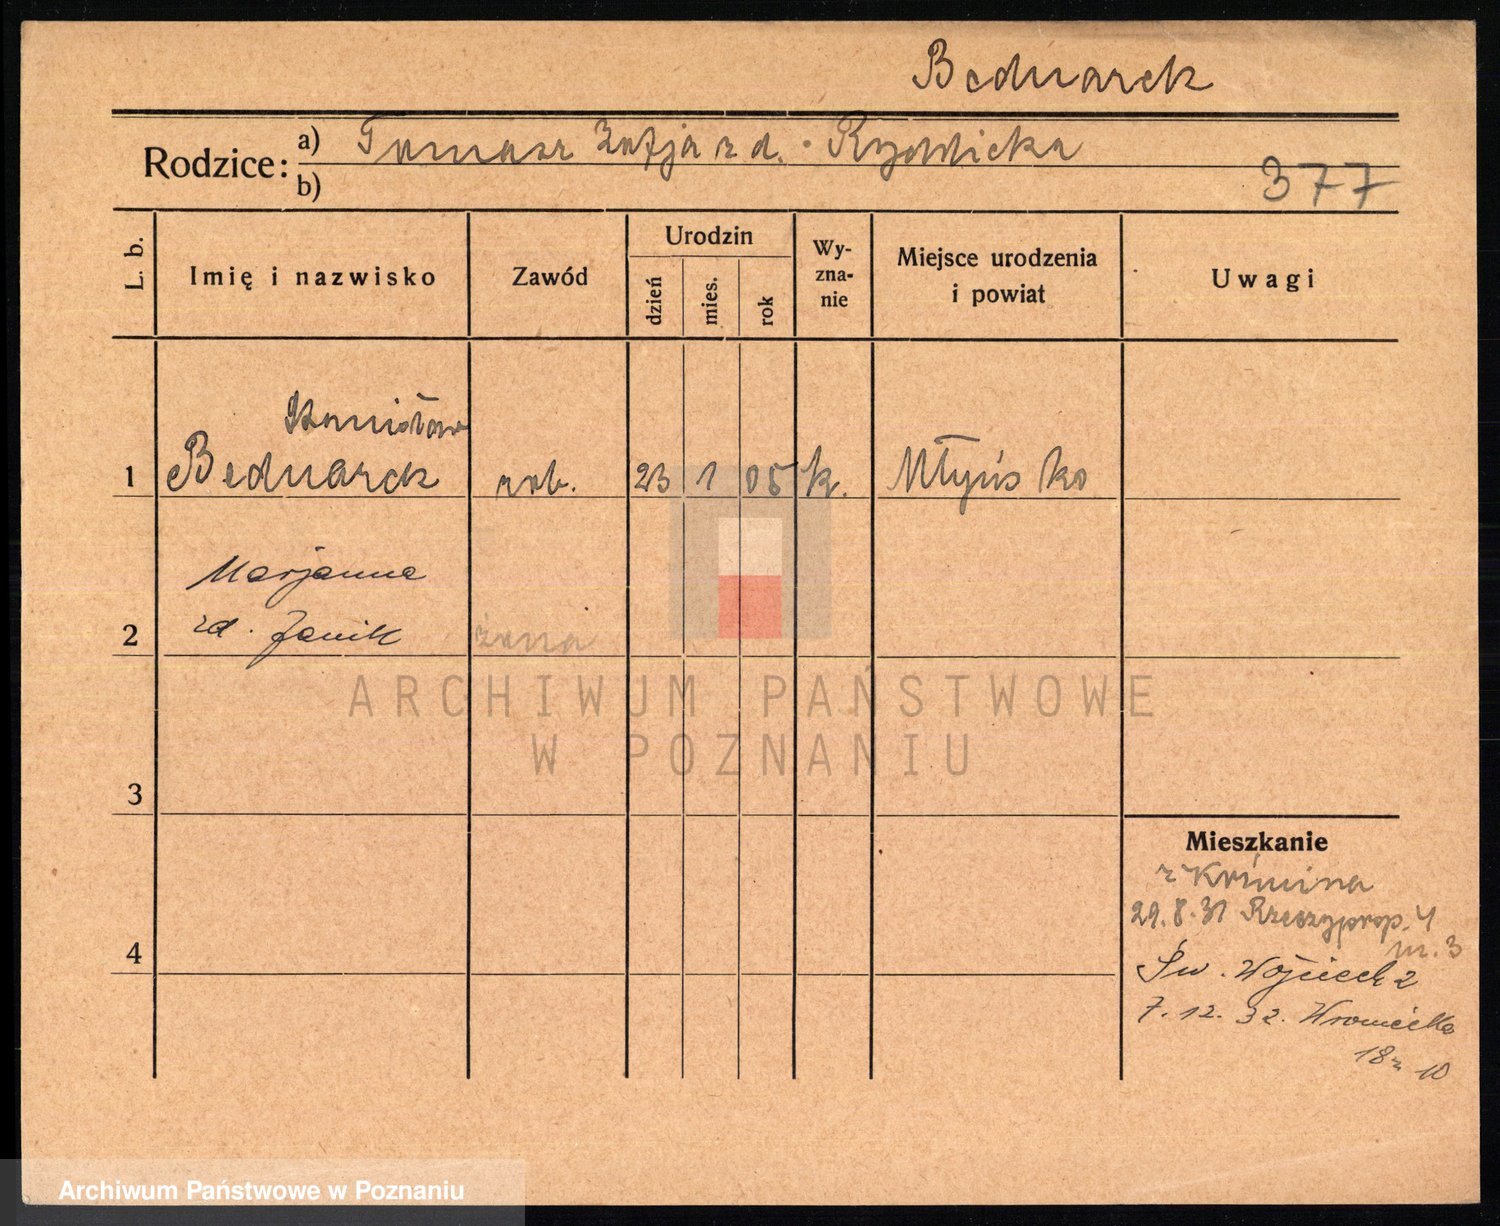 Bednarek
Rodzice:
a) Tomasz Zofja z d.
b)
377
L. b.
Imię i nazwisko
Zawód
Urodzin
dzień
mies.
rok
Wy-
zna-
nie
Miejsce urodzenia
i powiat
Uwagi
Stanisław
1 Bednarek rob. 23 1 05 k. Młyńsko
Marjanna
2 zd. Janik żona
ARCHIWUM PAŃSTWOWE
W POZNANIU
3
Mieszkanie
z
29.8.31 Rzeczyposp. 4
m. 3
4
Św. Wojciech 2
7.12.32. Wroniecka
18 10
Archiwum Państwowe w Poznaniu